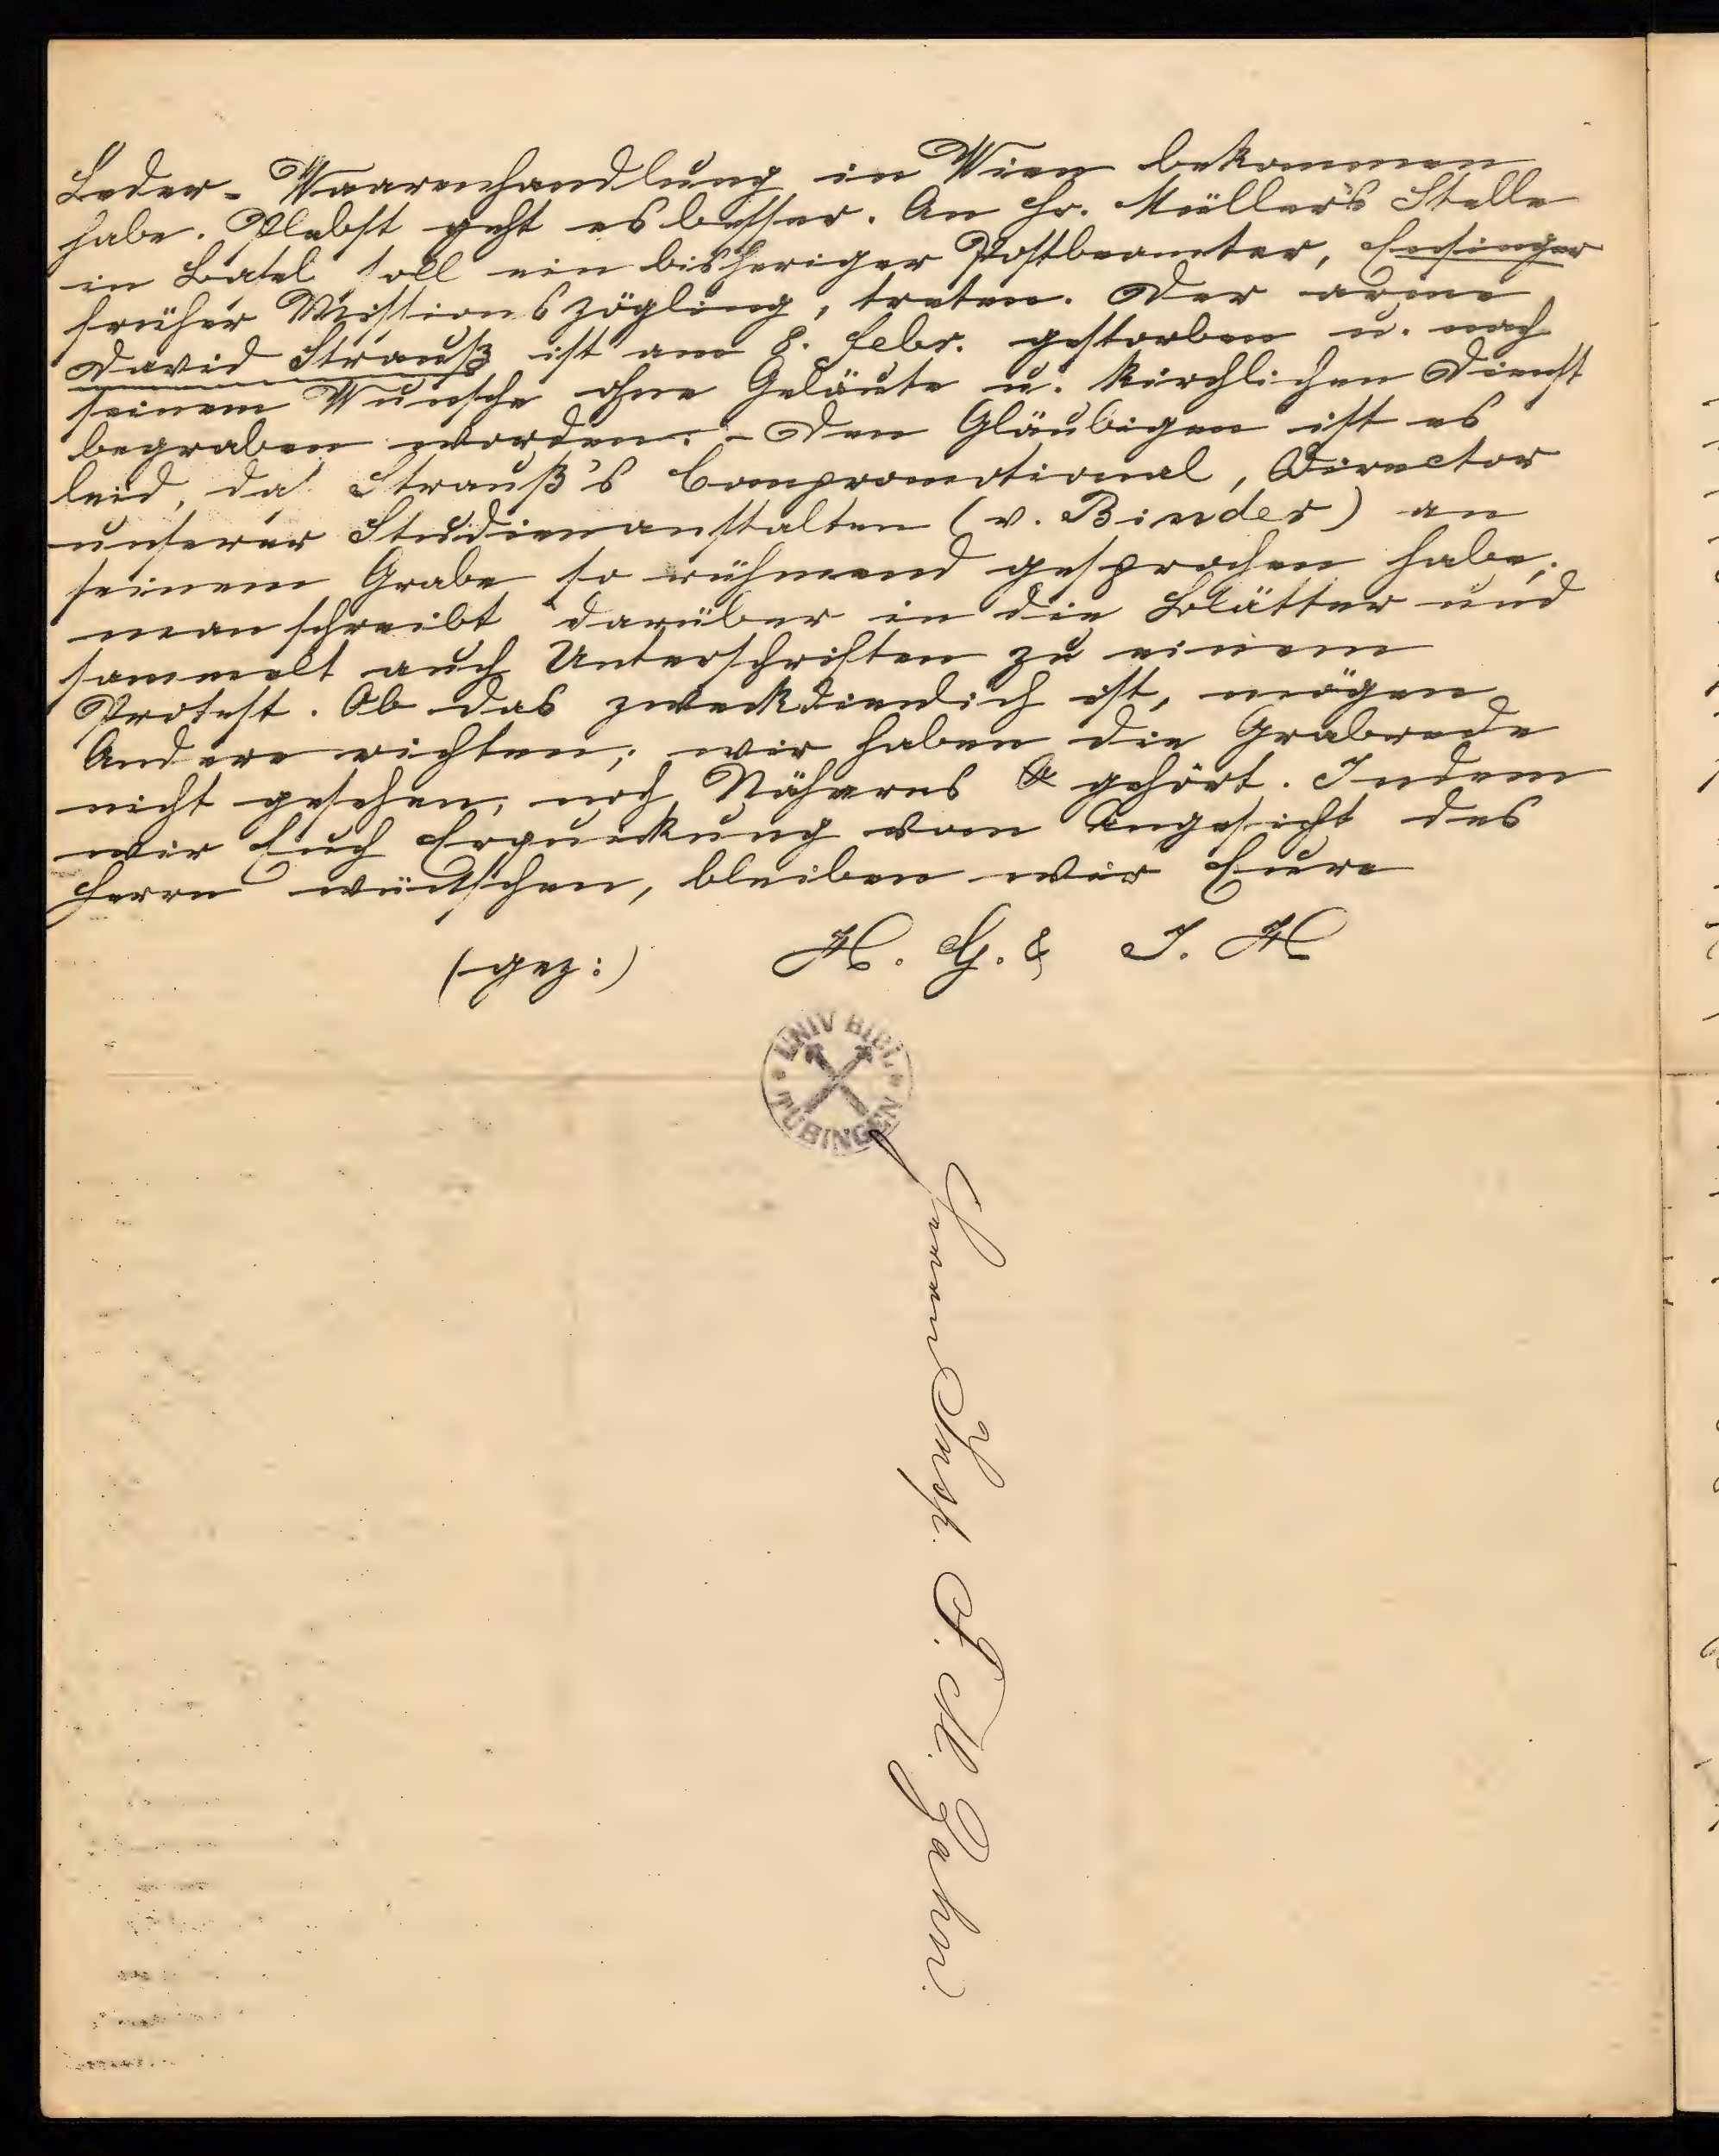 Leder-Waarenhandlung in Wien bekommen
habe. Plebst geht es besser. An Chr. Müller's Stelle
in Basel soll ein bisheriger Postbeamter, Ensinger
früher Missionszögling, treten. Der arme
David Strauß ist am 8. Febr. gestorben u. nach
seinem Wunsche ohne Geläute u. kirchlichen Dienst
begraben worden. - Den Gläubigen ist es
leid, daß Strauß's Compromotional, Director
unserer Studienanstalten (v. Binder) an
seinem Grabe so rühmend gesprochen habe;
man schreibt darüber in die Blätter und
sammelt auch Unterschriften zu einem
Protest. Ob das zweckdienlich ist, mögen
Andere richten; wir haben die Grabrede
nicht gesehen, noch Näheres gehört. Indem
wir Euch Erquickung vom Angesicht des
Herrn wünschen, bleiben wir Eure
(gez:) H. G. & J. H
UNIV BIBL.
TÜBINGEN
Herrn Insp. F. M. Zahn.